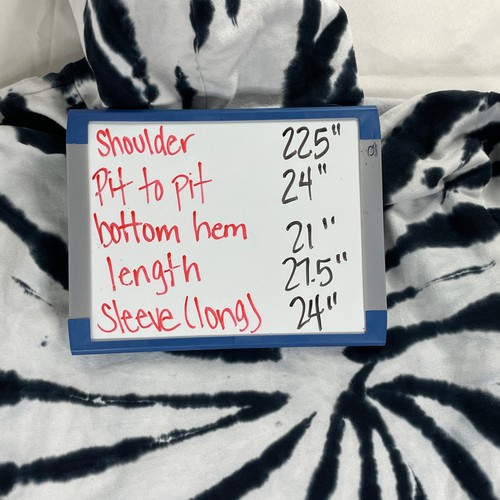 Shoulder 22.5"
Pit to pit 24"
bottom hem 21"
length 27.5"
Sleeve (long) 24"